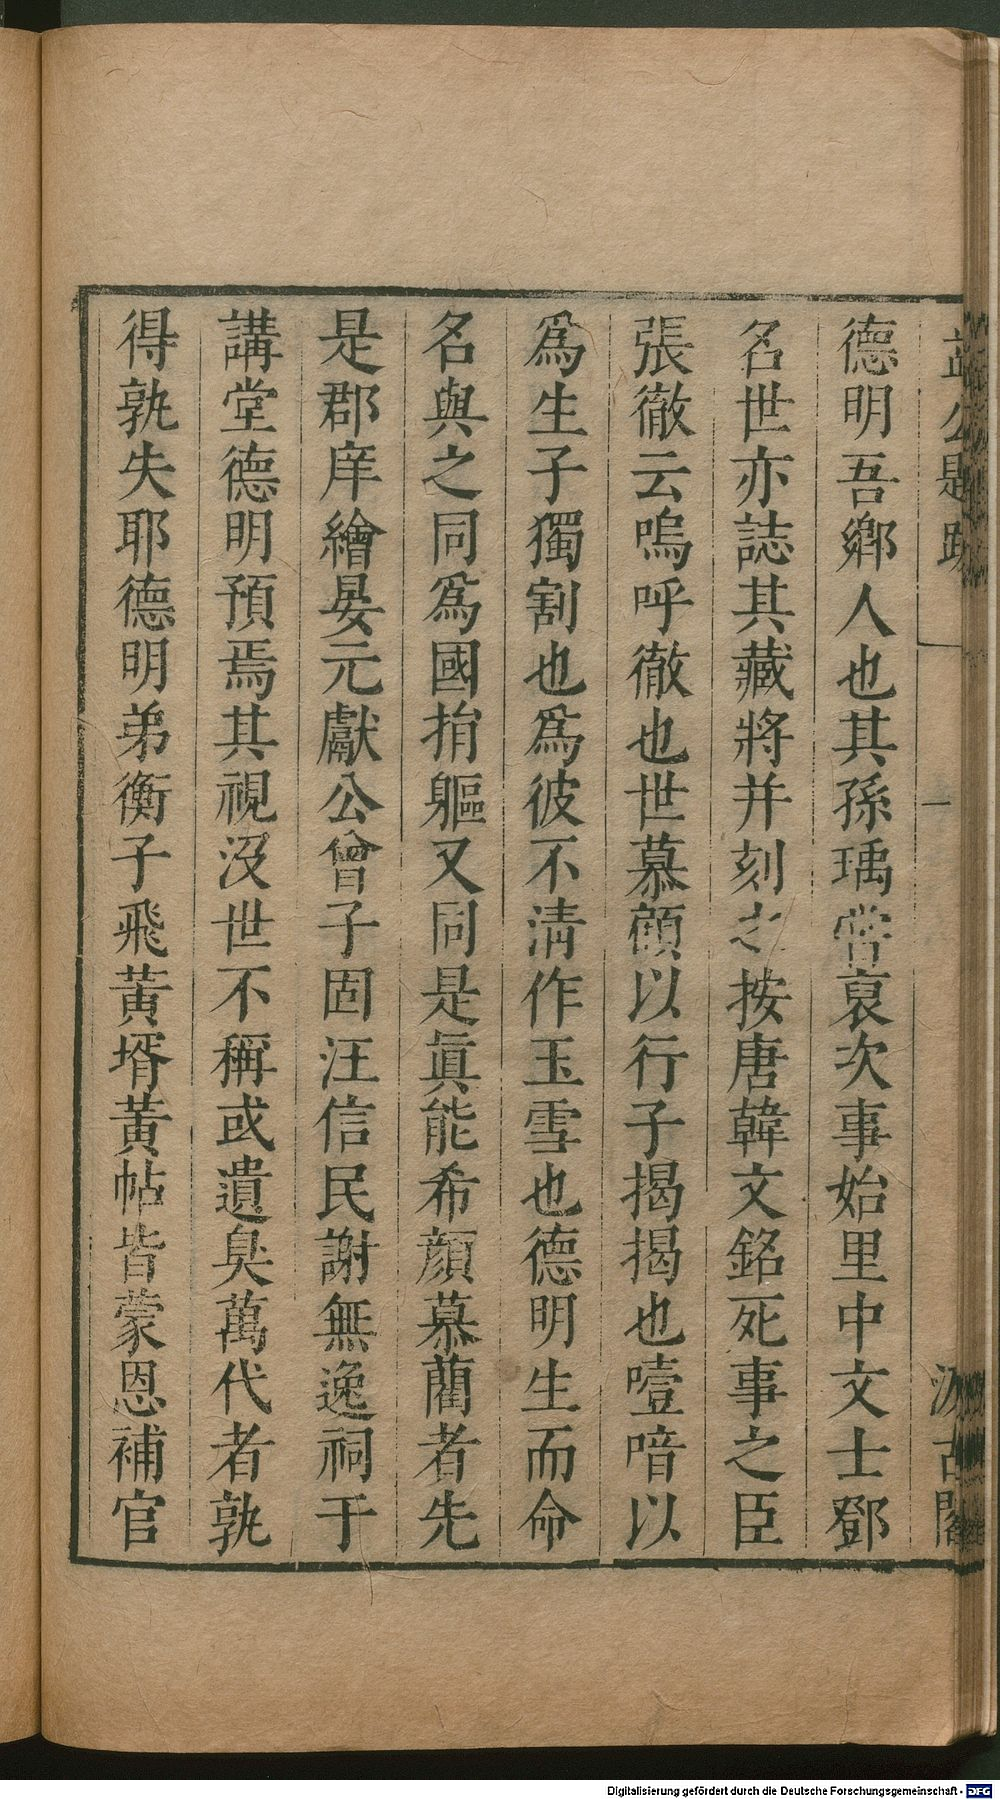 益公題跋 一 汲古閣
德明吾鄉人也其孫瑀嘗裒次事始里中文士鄧
名世亦誌其藏將并刻之按唐韓文銘死事之臣
張徹云嗚呼徹也世慕顧以行子揭揭也噎喑以
爲生子獨割也爲彼不清作玉雪也德明生而命
名與之同爲國捐軀又同是眞能希顏慕藺者先
是郡庠繪晏元獻公曾子固汪信民謝無逸祠于
講堂德明預焉其視沒世不稱或遺臭萬代者孰
得孰失耶德明弟衡子飛黃壻黃帖皆蒙恩補官
Digitalisierung gefördert durch die Deutsche Forschungsgemeinschaft - DFG